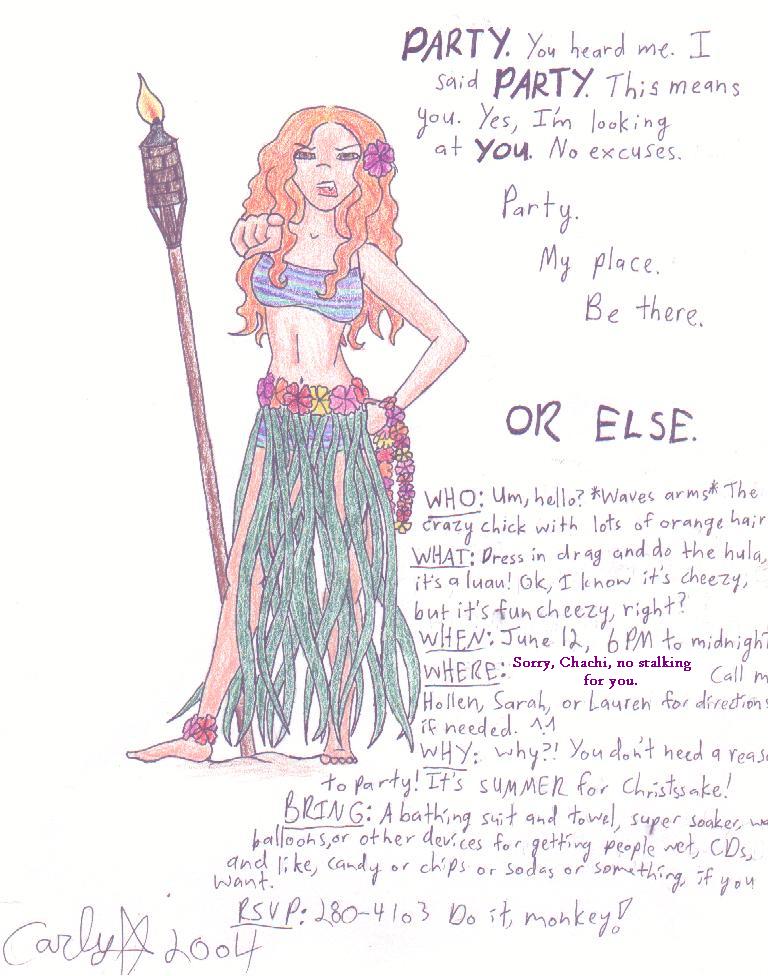 PARTY. You heard me. I
said PARTY. This means
you. Yes, I'm looking
at YOU. No excuses.
Party.
My place.
Be there.
OR ELSE.
WHO: Um, hello? *Waves arms* The
crazy chick with lots of orange hair
WHAT: Dress in drag and do the hula,
it's a luau! Ok, I know it's cheezy,
but it's fun cheezy, right?
WHEN: June 12, 6 PM to midnight
WHERE: Sorry, Chachi, no stalking
for you. Call m
Hollen, Sarah, or Lauren for directions
if needed. ^.^
WHY: Why?! You don't need a reaso
to party! It's SUMMER for Christssake!
BRING: A bathing suit and towel, super soaker, wa
balloons, or other devices for getting people wet, CDs,
and like, candy or chips or sodas or something, if you
want.
RSVP: 280-4103 Do it, monkey!
Carly☆ 2004